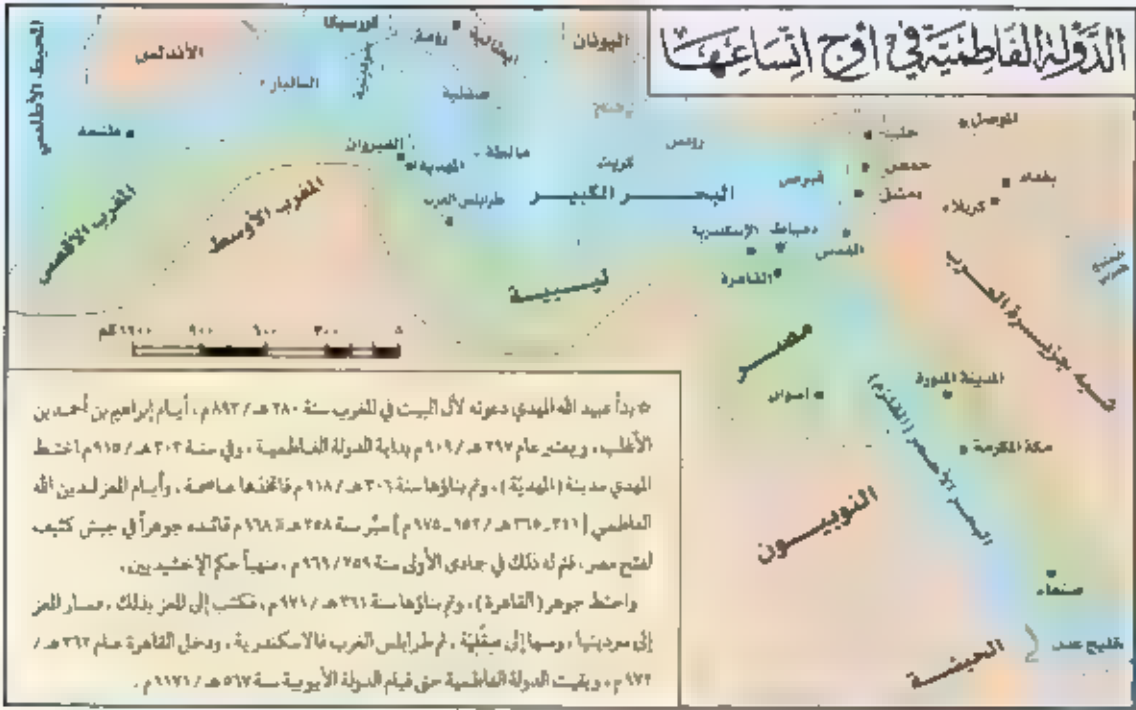 الدولة الفاطمية في أوج اتساعها
المحيط الأطلسي
الأندلس
كورسيكا
رومة
إيطالية
اليونان
سردينية
الباليار
صقلية
طنجة
القيروان
المهدية
مالطة
كريت
رودس
قبرص
حلب
الموصل
حمص
دمشق
بغداد
كربلاء
القدس
البحر الكبير
طرابلس الغرب
الإسكندرية
دمياط
القاهرة
المغرب الأقصى
المغرب الأوسط
ليبية
مصر
شبه جزيرة العرب
الخليج العربي
أسوان
المدينة المنورة
مكة المكرمة
البحر الأحمر (القلزم)
النوبيون
صنعاء
خليج عدن
الحبشة
٠ ٣٠٠ ٦٠٠ ٩٠٠ ١٢٠٠ كم
☆ بدأ عبيد الله المهدي دعوته لآل البيت في المغرب سنة ٢٨٠ هـ / ٨٩٣ م ، أيام إبراهيم بن أحمد بن
الأغلب ، ويعتبر عام ٢٩٧ هـ / ٩٠٩ م بداية الدولة الفاطمية ، وفي سنة ٣٠٣ هـ / ٩١٥ م اختط
المهدي مدينة ( المهديّة ) ، وتم بناؤها سنة ٣٠٦ هـ / ٩١٨ م فاتخذها عاصمة ، وأيام المعز لدين الله
الفاطمي [ ٣٤١ ـ ٣٦٥ هـ / ٩٥٢ ـ ٩٧٥ م ] سيّر سنة ٣٥٨ هـ / ٩٦٨ م قائده جوهراً في جيش كثيف
لفتح مصر ، فتم له ذلك في جمادى الأولى سنة ٣٥٩ / ٩٦٩ م ، منهياً حكم الإخشيديين .
واختط جوهر ( القاهرة ) ، وتم بناؤها سنة ٣٦١ هـ / ٩٧١ م ، فكتب إلى المعز بذلك ، فسار المعز
إلى سردينيا ، ومنها إلى صقلّيّة ، ثم طرابلس الغرب فالاسكندرية ، ودخل القاهرة عام ٣٦٢ هـ /
٩٧٢ م ، وبقيت الدولة الفاطمية حتى قيام الدولة الأيوبية سنة ٥٦٧ هـ / ١١٧١ م .